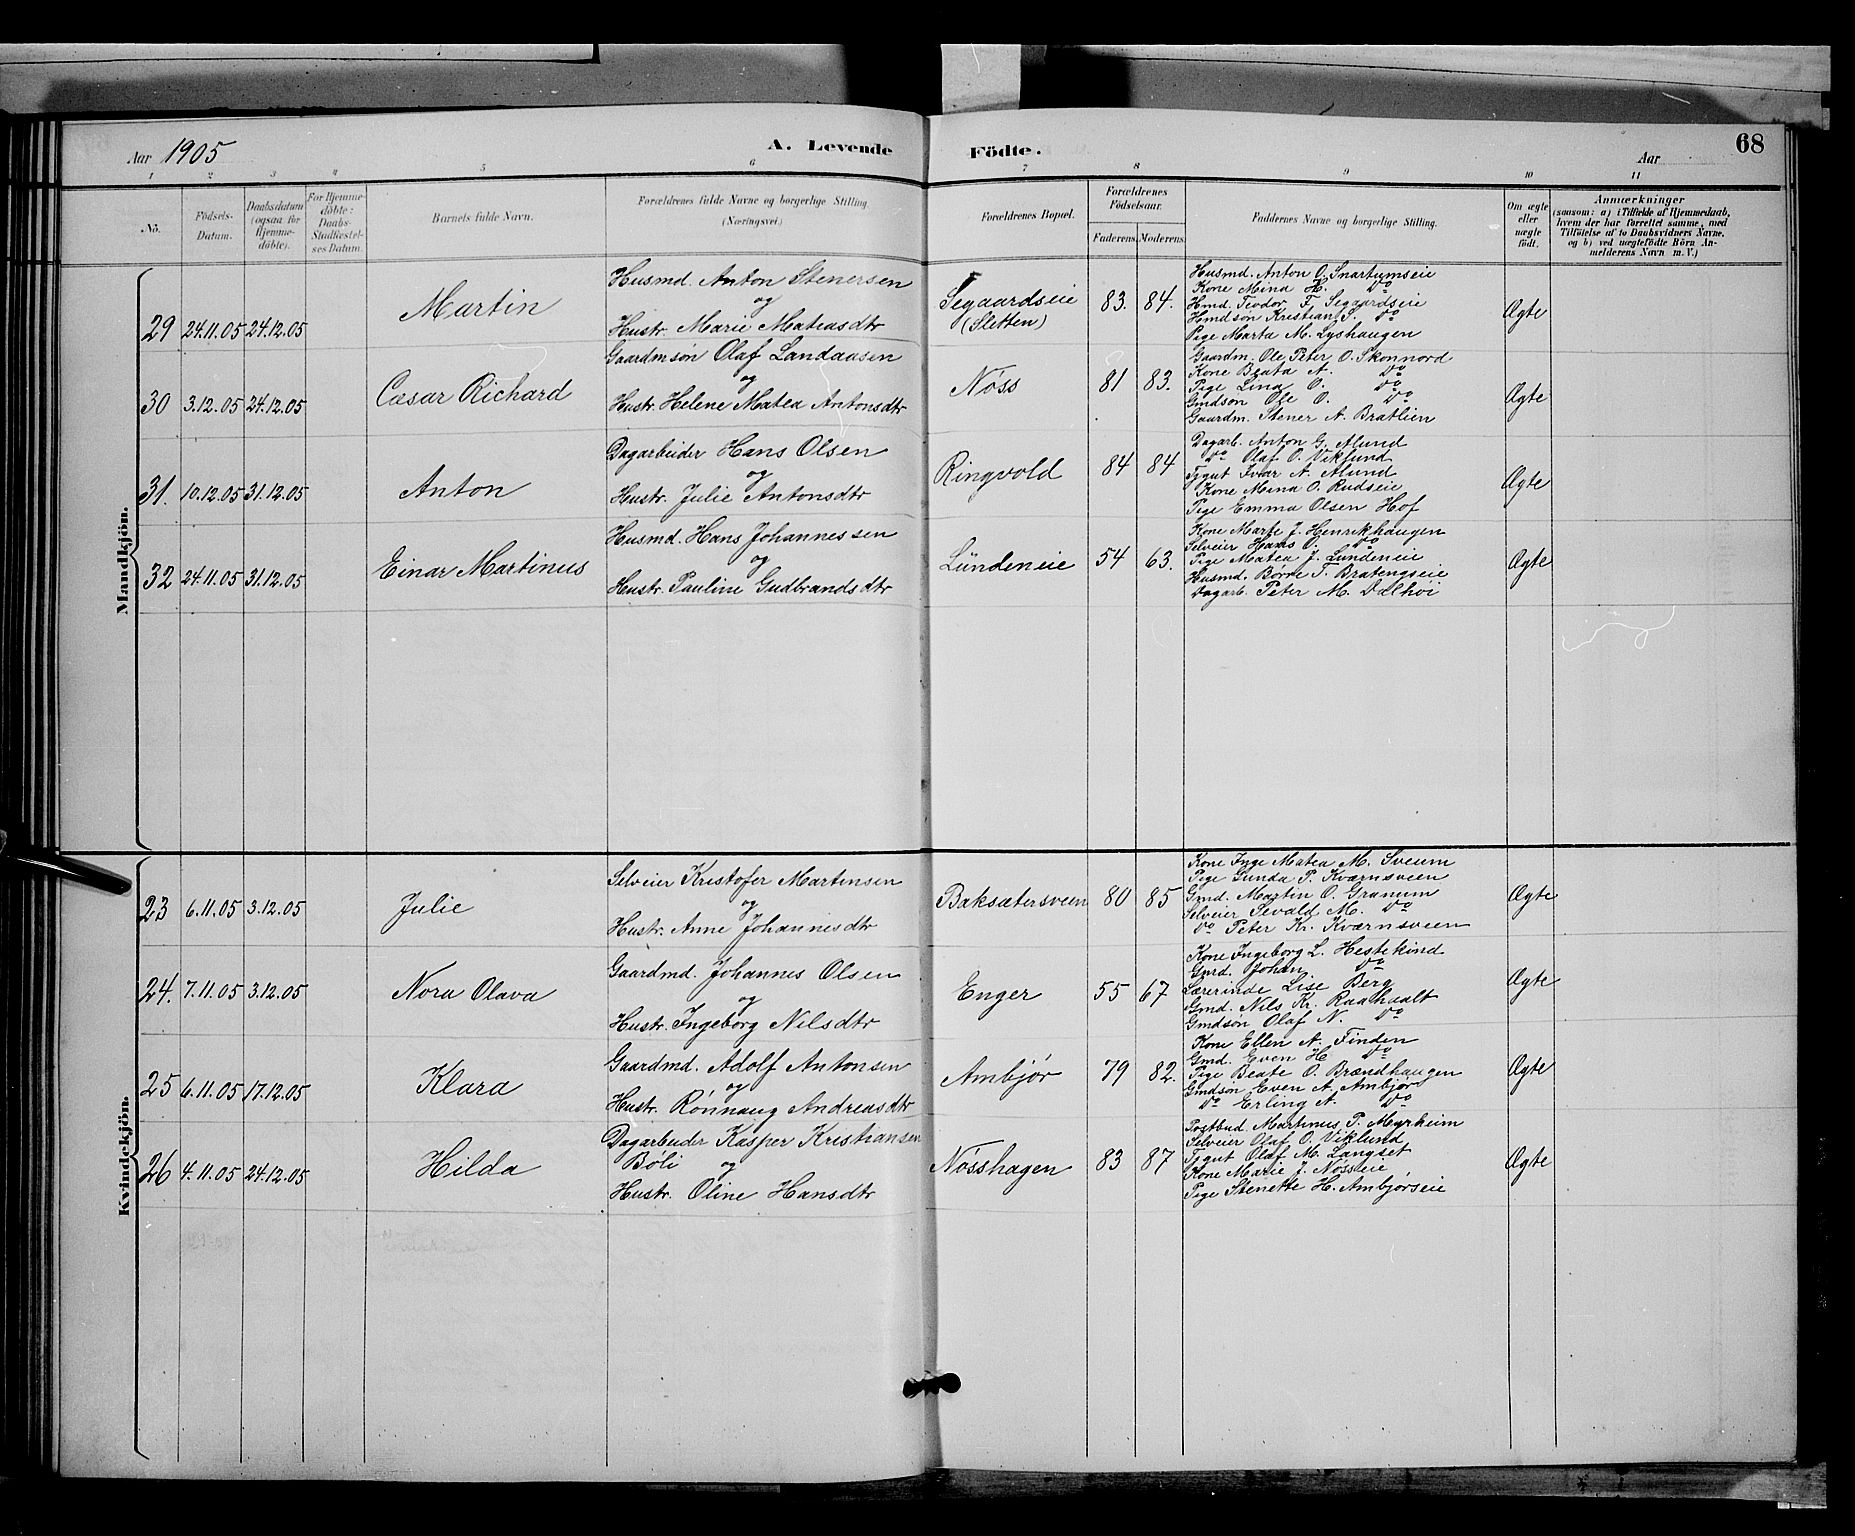 Aar 1905 A. Levende Födte. Aar 68
1 2 3 4 5 6 7 8 9 10 11
Nö.
Födsels-Datum.
Daabsdatum (ogsaa for Hjemme-döbte).
For Hjemme-döbte: Daabs-Stadfæstel-ses Datum.
Barnets fulde Navn.
Forældrenes fulde Navne og borgerlige Stilling (Næringsvei)
Forældrenes Bopæl.
Forældrenes Födselsaar.
Faderens. Moderens.
Faddernes Navne og borgerlige Stilling.
Om ægte eller uægte födt.
Anmærkninger
(saasom: a) i Tilfælde af Hjemmedaab,
hvem der har forrettet samme, med
Tilföielse af to Daabsvidners Navne,
og b) ved uægtefödte Börn An-
melderens Navn m. V.)
Mandkjön.
29 24.11.05 24.12.05 Martin
Husmd. Anton Stenersen
og
Hustr. Marie Mateasdtr
Segaardseie
(Sletten)
83. 84.
Husmd. Anton O. Snartumseie
Kone Mina H. Do
Hmd. Teodor F. Segaardseie
Hmdsøn Kristian S. do
Pige Marta M. Lyshaugen
Ægte
30 3.12.05 24.12.05 Cæsar Richard
Gaardmsøn Olaf Landaasen
og
Hustr. Helene Matea Antonsdtr
Nøss
81 83.
Gaardm. Ole Peter O. Skonnord
Kone Beata A. Do
Pige Lina O. Do
Gmdsøn Ole O. Do
Gaardm. Stener A. Bratlien
Ægte
31. 10.12.05 31.12.05 Anton
Dagarbeider Hans Olsen
og
Hustr. Julie Antonsdtr
Ringvold
84 84
Dagarb. Anton G. Alund
Do Olaf O. Viklund
Tjgut Ivar A. Alund
Kone Mina O. Rudseie
Pige Emma Olsen Hof
Ægte
32 24.11.05 31.12.05 Einar Martinus
Husmd. Hans Johannessen
og
Hustr. Pauline Gudbrandsdtr
Lundeneie
54 63.
Kone Marte J. Henrikhaugen
Selveier Hans O. Do
Pige Matea J. Lundeneie
Husmd. Børre T. Bratengseie
Dagarb. Peter M. Dalhoi
Ægte
Kvindekjön.
23 6.11.05 3.12.05 Julie
Selveier Kristofer Martinsen
og
Hustr. Anne Johannesdtr
Baksætersveen
80 85
Kone Inge Matea M. Sveum
Pige Gunda P. Kværnsveen
Gmd. Martin O. Granum
Selveier Sevald M. Do
Do Peter Kr. Kværnsveen
Ægte
24. 7.11.05 3.12.05 Nora Olava
Gaardmd. Johannes Olsen
og
Hustr. Ingeborg Nilsdtr
Enger
55 67
Kone Ingeborg L. Hestekind
Gmd. Johan Do
Lærerinde Lise Berg
Gmd. Nils Kr. Raahaalt
Gmdsøn Olaf N. Do
Ægte
25 6.11.05 17.12.05 Klara
Gaardmd. Adolf Antonsen
og
Hustr. Rønnaug Andreasdtr
Ambjør
79 82.
Kone Ellen A. Finden
Gmd. Even H Do
Pige Beate O. Brændhaugen
Gmdsøn Even A. Ambjør
Do Erling A. Do
Ægte
26 4.11.05 24.12.05 Hilda
Dagarbeider Kasper Kristiansen
Bøli og
Hustr. Oline Hansdtr
Nøsshagen
83 87
Postbud. Martinus P. Myrheim
Selveier Olaf O. Viklund
Tjgut Olaf M. Langset
Kone Marie J. Nøsseie
Pige Stenette H. Ambjørseie
Ægte